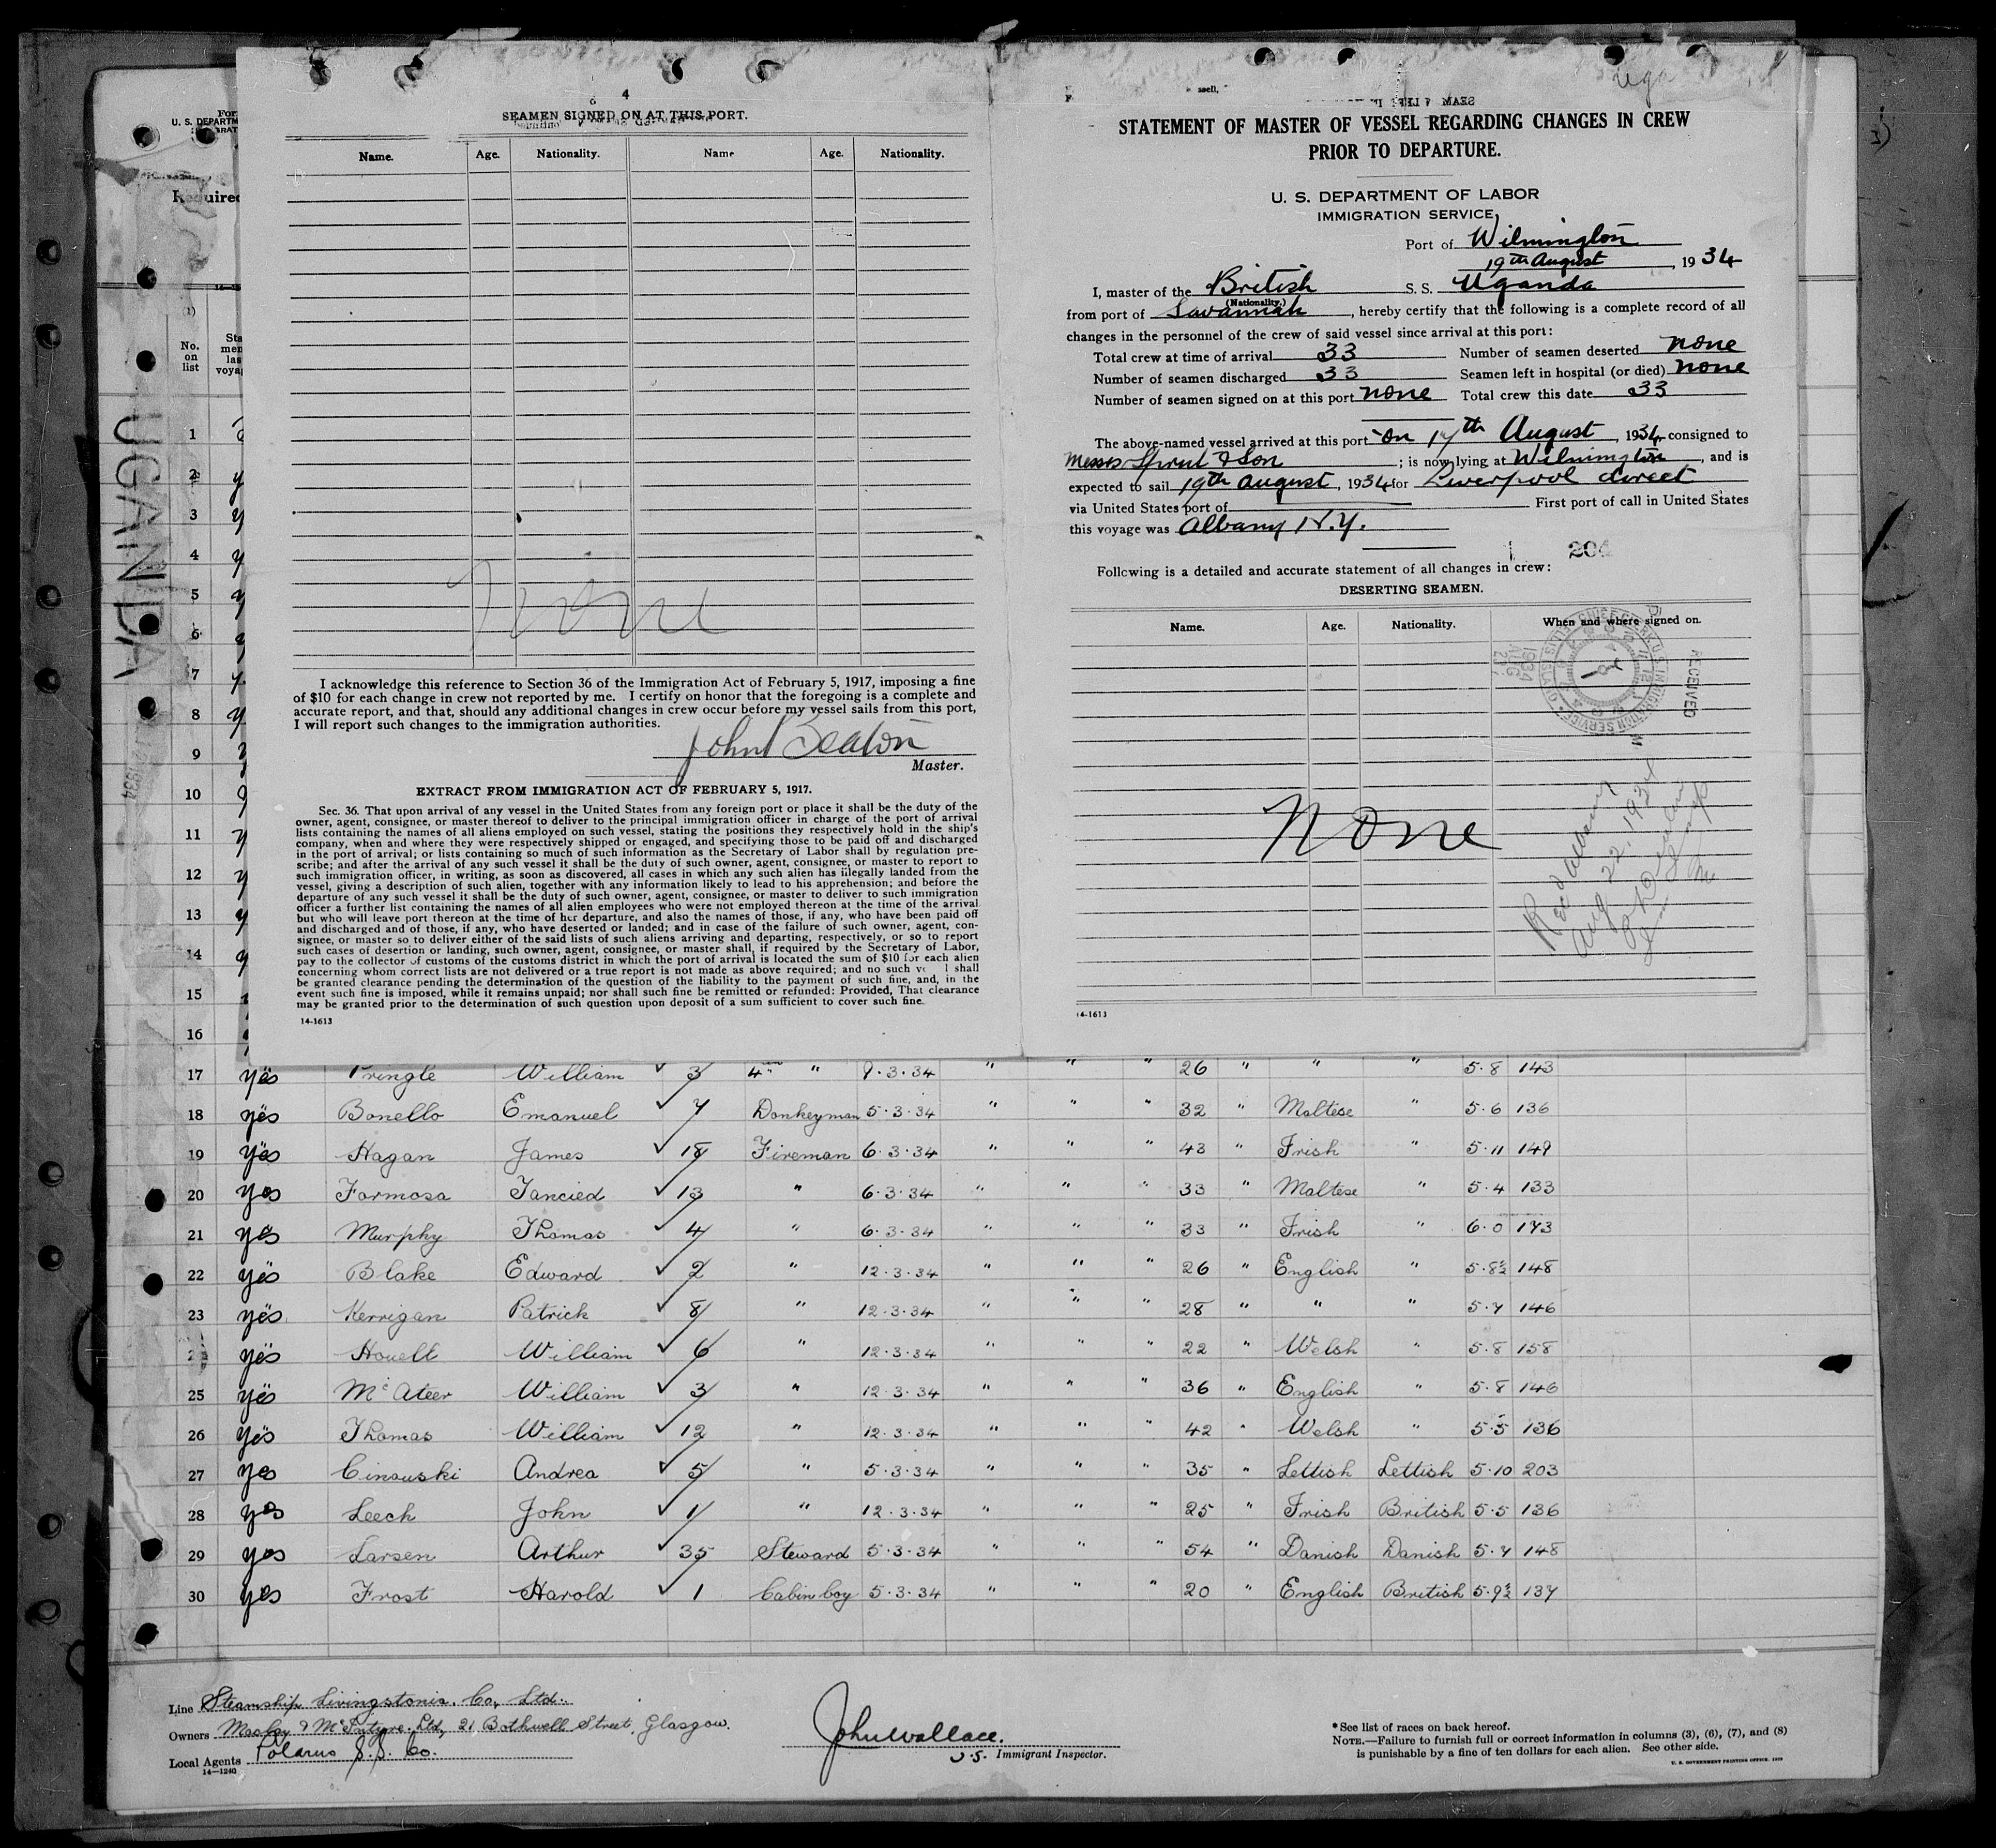 4
SEAMEN SIGNED ON AT THIS PORT.
Name. Age. Nationality. Name Age. Nationality.
None
I acknowledge this reference to Section 36 of the Immigration Act of February 5, 1917, imposing a fine
of $10 for each change in crew not reported by me. I certify on honor that the foregoing is a complete and
accurate report, and that, should any additional changes in crew occur before my vessel sails from this port,
I will report such changes to the immigration authorities.
John Seaton
Master.
EXTRACT FROM IMMIGRATION ACT OF FEBRUARY 5, 1917.
Sec. 36. That upon arrival of any vessel in the United States from any foreign port or place it shall be the duty of the
owner, agent, consignee, or master thereof to deliver to the principal immigration officer in charge of the port of arrival
lists containing the names of all aliens employed on such vessel, stating the positions they respectively hold in the ship's
company, when and where they were respectively shipped or engaged, and specifying those to be paid off and discharged
in the port of arrival; or lists containing so much of such information as the Secretary of Labor shall by regulation pre-
scribe; and after the arrival of any such vessel it shall be the duty of such owner, agent, consignee, or master to report to
such immigration officer, in writing, as soon as discovered, all cases in which any such alien has illegally landed from the
vessel, giving a description of such alien, together with any information likely to lead to his apprehension; and before the
departure of any such vessel it shall be the duty of such owner, agent, consignee, or master to deliver to such immigration
officer a further list containing the names of all alien employees who were not employed thereon at the time of the arrival
but who will leave port thereon at the time of her departure, and also the names of those, if any, who have been paid off
and discharged and of those, if any, who have deserted or landed; and in case of the failure of such owner, agent, con-
signee, or master so to deliver either of the said lists of such aliens arriving and departing, respectively, or so to report
such cases of desertion or landing, such owner, agent, consignee, or master shall, if required by the Secretary of Labor,
pay to the collector of customs of the customs district in which the port of arrival is located the sum of $10 for each alien
concerning whom correct lists are not delivered or a true report is not made as above required; and no such ve l shall
be granted clearance pending the determination of the question of the liability to the payment of such fine, and, in the
event such fine is imposed, while it remains unpaid; nor shall such fine be remitted or refunded: Provided, That clearance
may be granted prior to the determination of such question upon deposit of a sum sufficient to cover such fine.
14-1613
Uga
STATEMENT OF MASTER OF VESSEL REGARDING CHANGES IN CREW
PRIOR TO DEPARTURE.
U. S. DEPARTMENT OF LABOR
IMMIGRATION SERVICE
Port of Wilmington
19th August, 1934
I, master of the British S. S. Uganda
(Nationality.)
from port of Savannah, hereby certify that the following is a complete record of all
changes in the personnel of the crew of said vessel since arrival at this port:
Total crew at time of arrival 33 Number of seamen deserted none
Number of seamen discharged 33 Seamen left in hospital (or died) none
Number of seamen signed on at this port none Total crew this date 33
The above-named vessel arrived at this port on 17th August, 1934, consigned to
Messrs Sprunt & Son; is now lying at Wilmington, and is
expected to sail 19th August, 1934 for Liverpool direct
via United States port of First port of call in United States
this voyage was Albany N.Y.
204
Following is a detailed and accurate statement of all changes in crew:
DESERTING SEAMEN.
Name. Age. Nationality. When and where signed on.
RECEIVED
AUG
1934
None
Rec'd Albany
Aug 22, 1934
14-1613
U. S. DEPARTM
Required
UGANDA
(1)
No. on list
Sta men las voya
1
2 y
3 y
4 y
5 y
6 y
7 y
8 y
9 y
10 y
11 y
12 y
13 y
14 y
15
16
17 yes Pringle William ✓ 3 4th " 9.3.34 " " " 26 " " " 5.8 143
18 yes Bonello Emanuel ✓ 7 Donkeyman 5.3.34 " " " 32 " Maltese " 5.6 136
19 yes Hagan James ✓ 18 Fireman 6.3.34 " " " 43 " Irish " 5.11 149
20 yes Formosa Tancied ✓ 13 " 6.3.34 " " " 33 " Maltese " 5.4 133
21 yes Murphy Thomas ✓ 4 " 6.3.34 " " " 33 " Irish " 6.0 173
22 yes Blake Edward ✓ 2 " 12.3.34 " " " 26 " English " 5.8½ 148
23 yes Kerrigan Patrick ✓ 8 " 12.3.34 " " " 28 " " " 5.7 146
yes Howell William ✓ 6 " 12.3.34 " " 22 " Welsh " 5.8 158
25 yes McAteer William ✓ 3 " 12.3.34 " " " 36 " English " 5.8 146
26 yes Thomas William ✓ 12 " 12.3.34 " " " 42 " Welsh " 5.5 136
27 yes Cinauski Andrea ✓ 5 " 5.3.34 " " " 35 " Lettish Lettish 5.10 203
28 yes Leech John ✓ 1 " 12.3.34 " " " 25 " Irish British 5.5 136
29 yes Larsen Arthur ✓ 35 Steward 5.3.34 " " " 54 " Danish Danish 5.7 148
30 yes Frost Harold ✓ 1 Cabin boy 5.3.34 " " " 20 " English British 5.9½ 137
Line Steamship Livingstonia. Co, Ltd.
Owners Maclay & McIntyre. Ltd, 21 Bothwell Street, Glasgow.
Local Agents Polarus S.S. Co.
14—1240
John Wallace.
U.S. Immigrant Inspector.
*See list of races on back hereof.
NOTE.—Failure to furnish full or correct information in columns (3), (6), (7), and (8)
is punishable by a fine of ten dollars for each alien. See other side.
U. S. GOVERNMENT PRINTING OFFICE. 1929